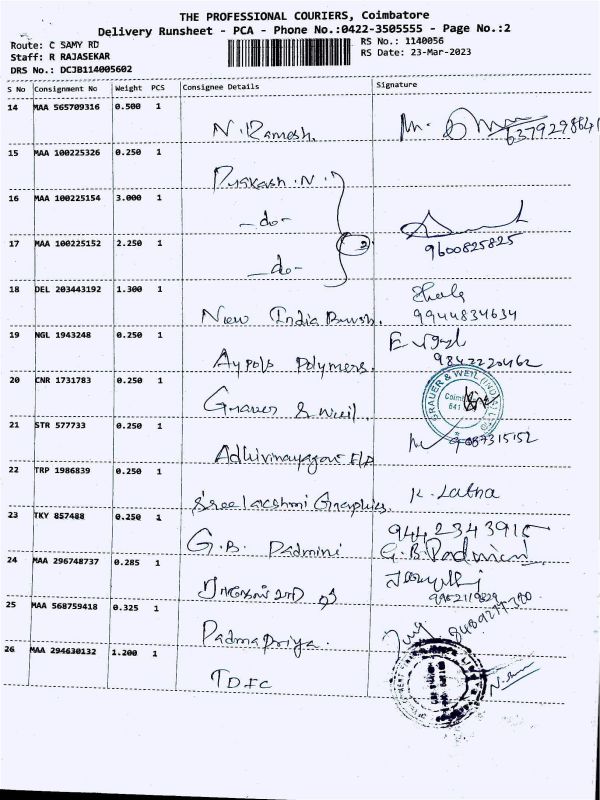 THE PROFESSIONAL COURIERS, Coimbatore
Delivery Runsheet - PCA - Phone No.:0422-3505555 - Page No.:2
Route: C SAMY RD
RS No.: 1140056
Staff: R RAJASEKAR
RS Date: 23-Mar-2023
DRS No.: DCJB114005602
S No Consignment No Weight PCS Consignee Details Signature
14 MAA 565709316 0.500 1
N. Ramesh
15 MAA 100225326 0.250 1
Prakash. N.
16 MAA 100225154 3.000 1
-do-
17 MAA 100225152 2.250 1
2
9600825825
-do-
18 DEL 203443192 1.300 1
New India Brush. 9944834634
19 NGL 1943248 0.250 1
Aypols Polymers. 9842220462
20 CNR 1731783 0.250 1
GRAUER & WEIL (INDIA) LTD
Grauer & Weil
21 STR 577733 0.250 1
9087315152
22 TRP 1986839 0.250 1
Sree lakshmi Graphics. K. Latha
23 TKY 857488 0.250 1
G.B. Padmini G.B. Padmini
24 MAA 296748737 0.285 1
25 MAA 568759418 0.325 1
Padmapriya.
26 MAA 294630132 1.200 1